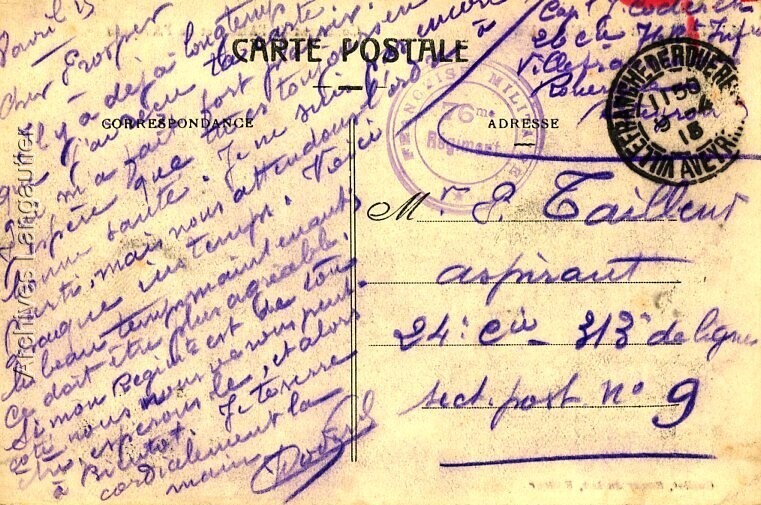 8 avril 15
Cher Prosper
Il y a déjà longtemps
que j'ai reçu ta carte.
Ça m'a fait fort plaisir.
J'espère que tu es toujours en
bonne santé. Je ne suis encore
parti, mais nous attendons l'ordre à
chaque instant. Voici
le beau temps maintenant
ce doit être plus agréable.
Si mon Régiment est de ton
côté nous nous verrons peut-
être, espérons le, et alors
à bientôt. Je te serre
cordialement la
main
CARTE POSTALE
CORRESPONDANCE
ADRESSE
FRANCHISE MILITAIRE
76me
Régiment
Cap. J.
26e Cie
Villefranche
VILLEFRANCHE DE ROUERGUE
11 50
9 - 4
15
AVEYRON
Mr P. Tailleur
aspirant
24e Cie 313e de ligne
sect. post. n° 9
Archives Langauffier